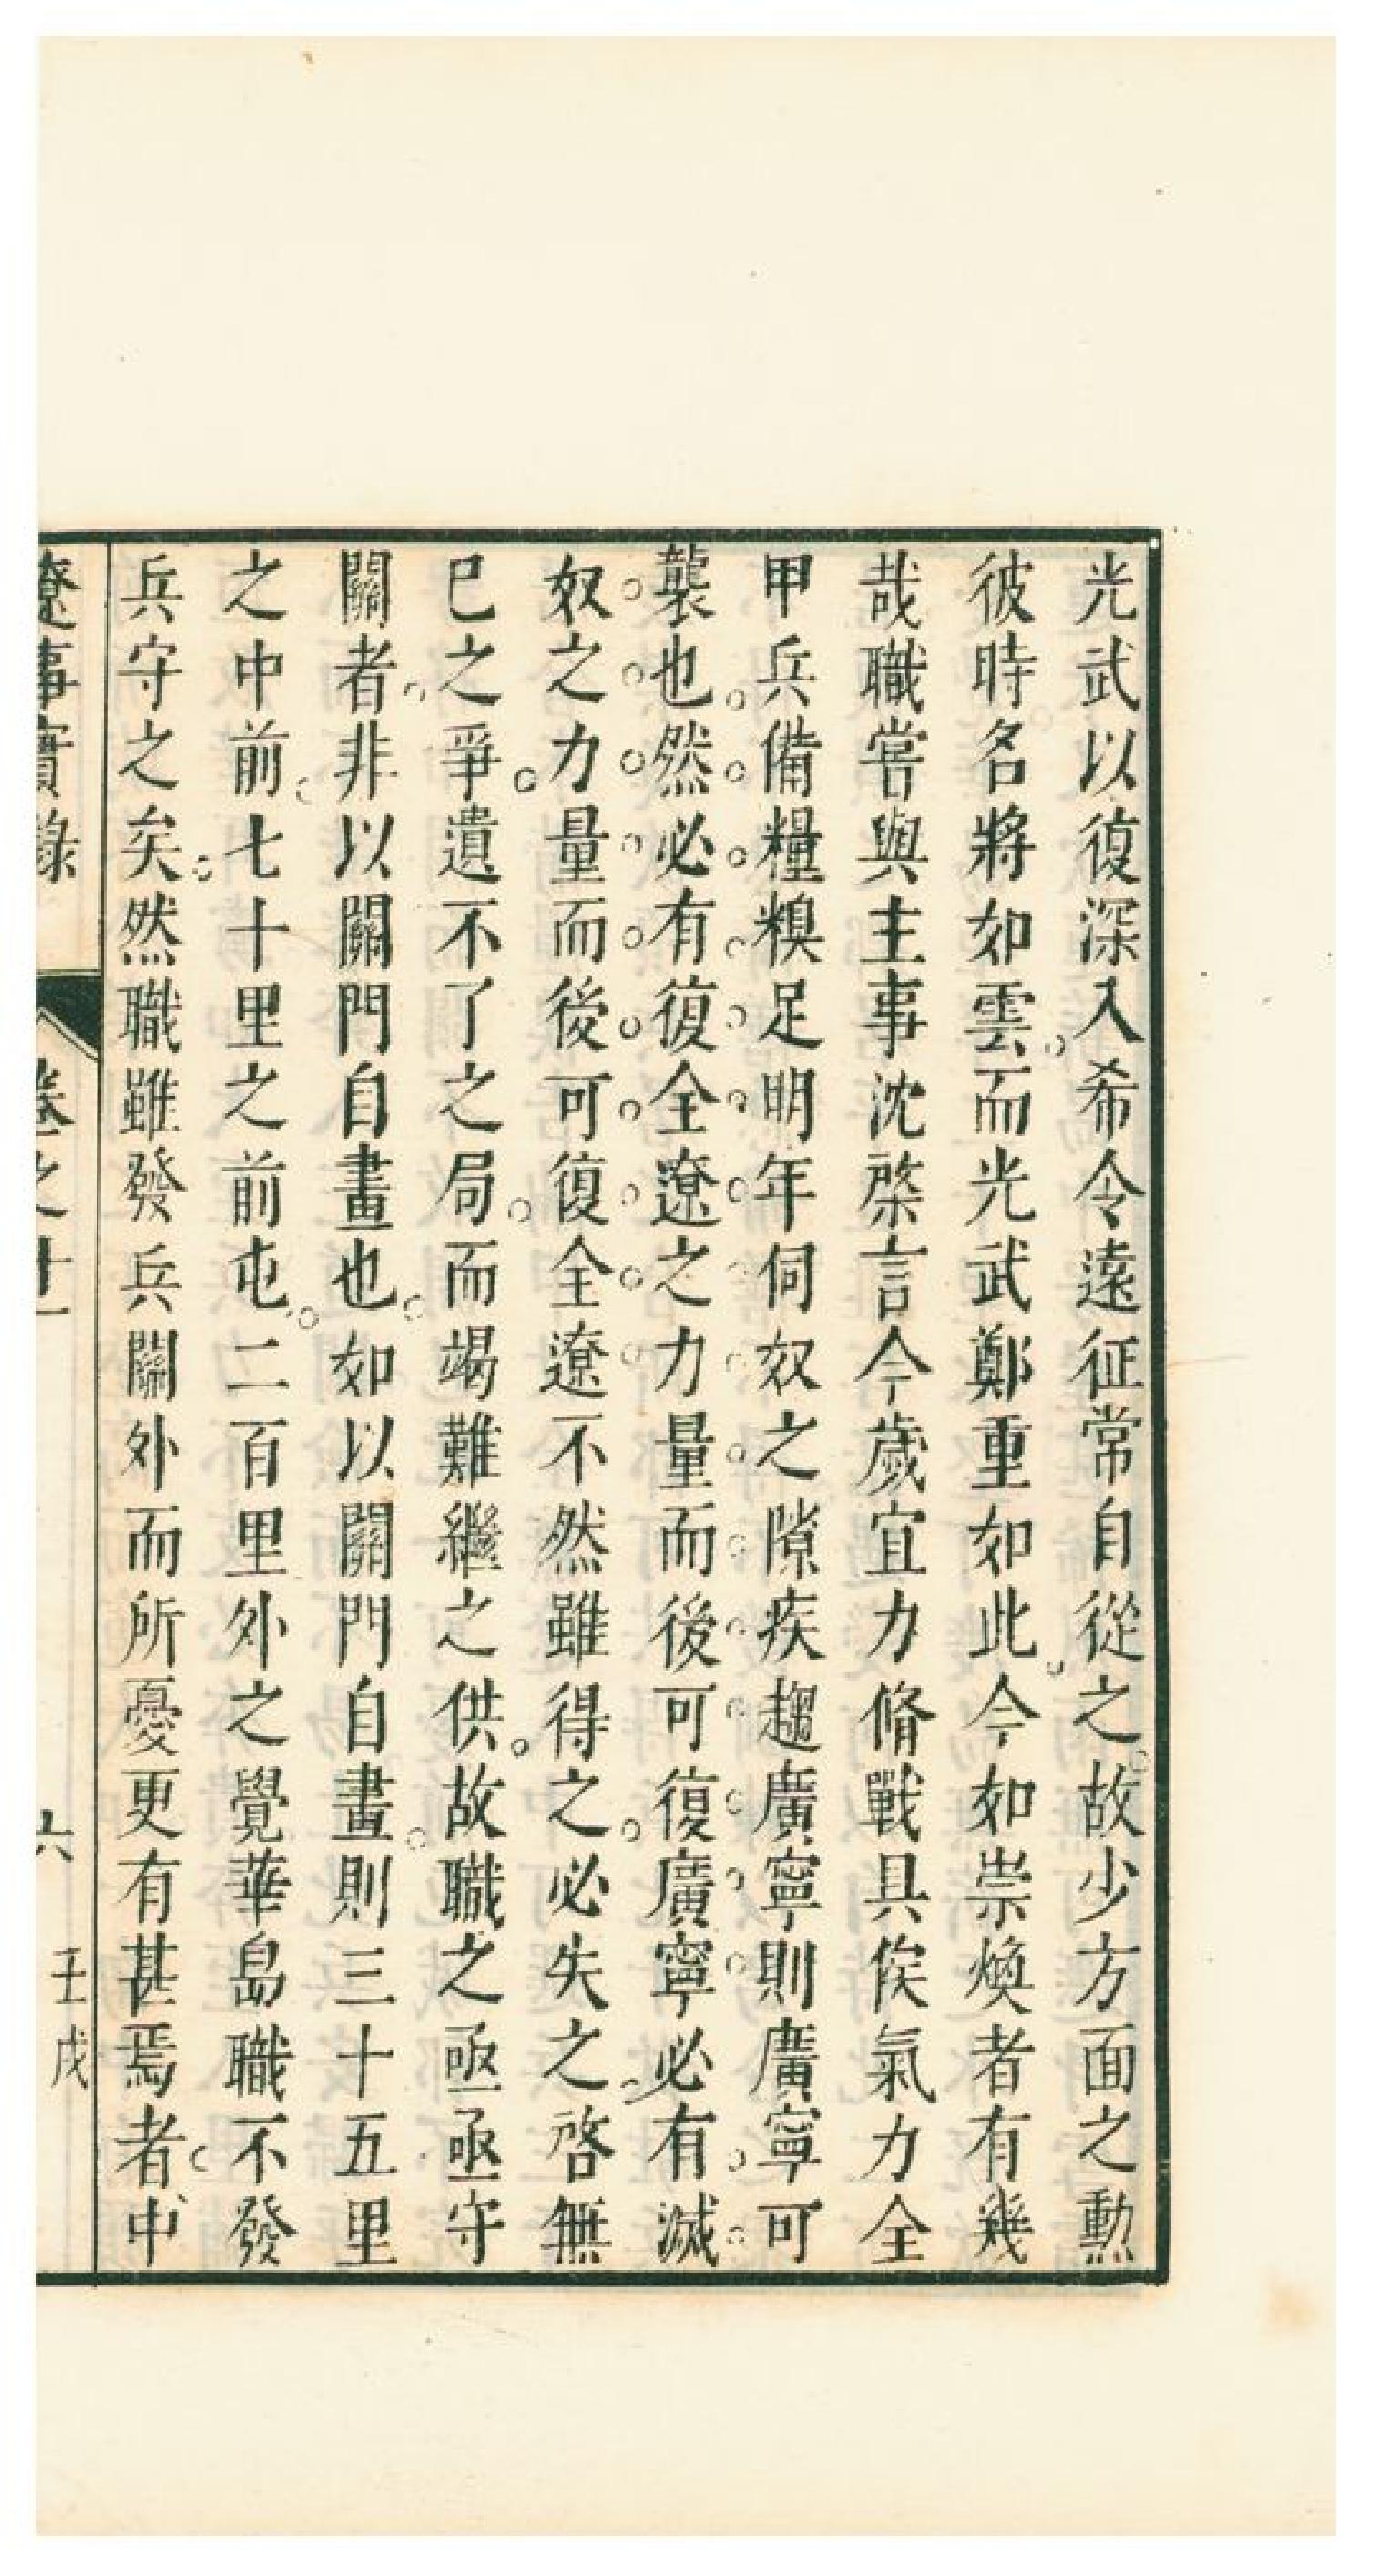 光武以復深入希令遠征常自從之故少方面之勲
彼時名將如雲而光武鄭重如此今如崇煥者有幾
哉職嘗與主事沈棨言今歲宜力脩戰具俟氣力全
甲兵備糧糗足明年伺奴之隙疾趨廣寧則廣寧可
襲也然必有復全遼之力量而後可復廣寧必有滅
奴之力量而後可復全遼不然雖得之必失之啓無
已之爭遺不了之局而竭難繼之供故職之亟亟守
關者非以關門自畫也如以關門自畫則三十五里
之中前七十里之前屯二百里外之覺華島職不發
兵守之矣然職雖發兵關外而所憂更有甚焉者中
遼事實錄
卷之十一
六
壬戌